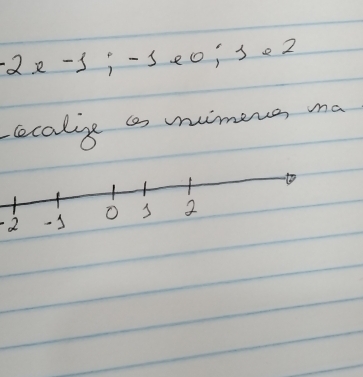 -2 e -1 ; -1 e 0 ; 1 e 2
Localize os números na
-2 -1 0 1 2